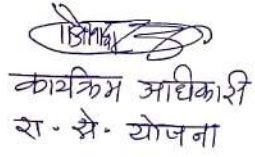 कार्यक्रम अधिकारी
रा - से - योजना